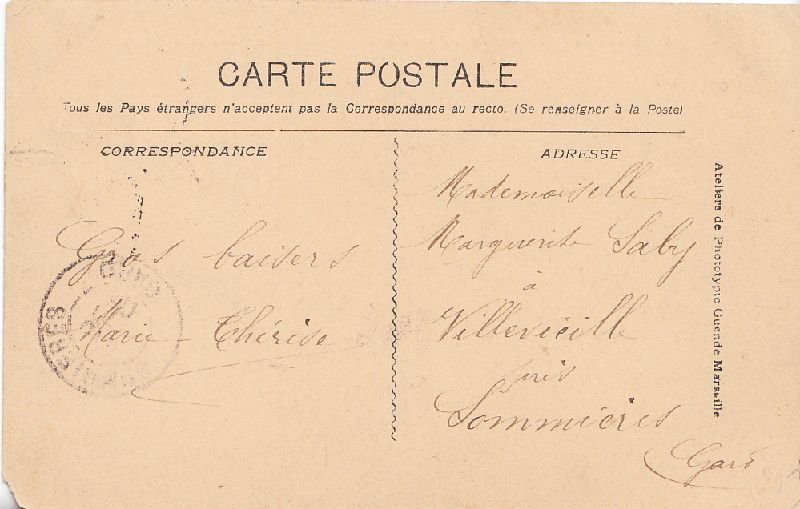 CARTE POSTALE
Tous les Pays étrangers n'acceptent pas la Correspondance au recto. (Se renseigner à la Poste)
CORRESPONDANCE
Gros baisers
Marie-Thérèse
ADRESSE
Mademoiselle
Marguerite Saby
à
Villevieille
près
Sommières
Gard
Ateliers de Phototypie Guende Marseille